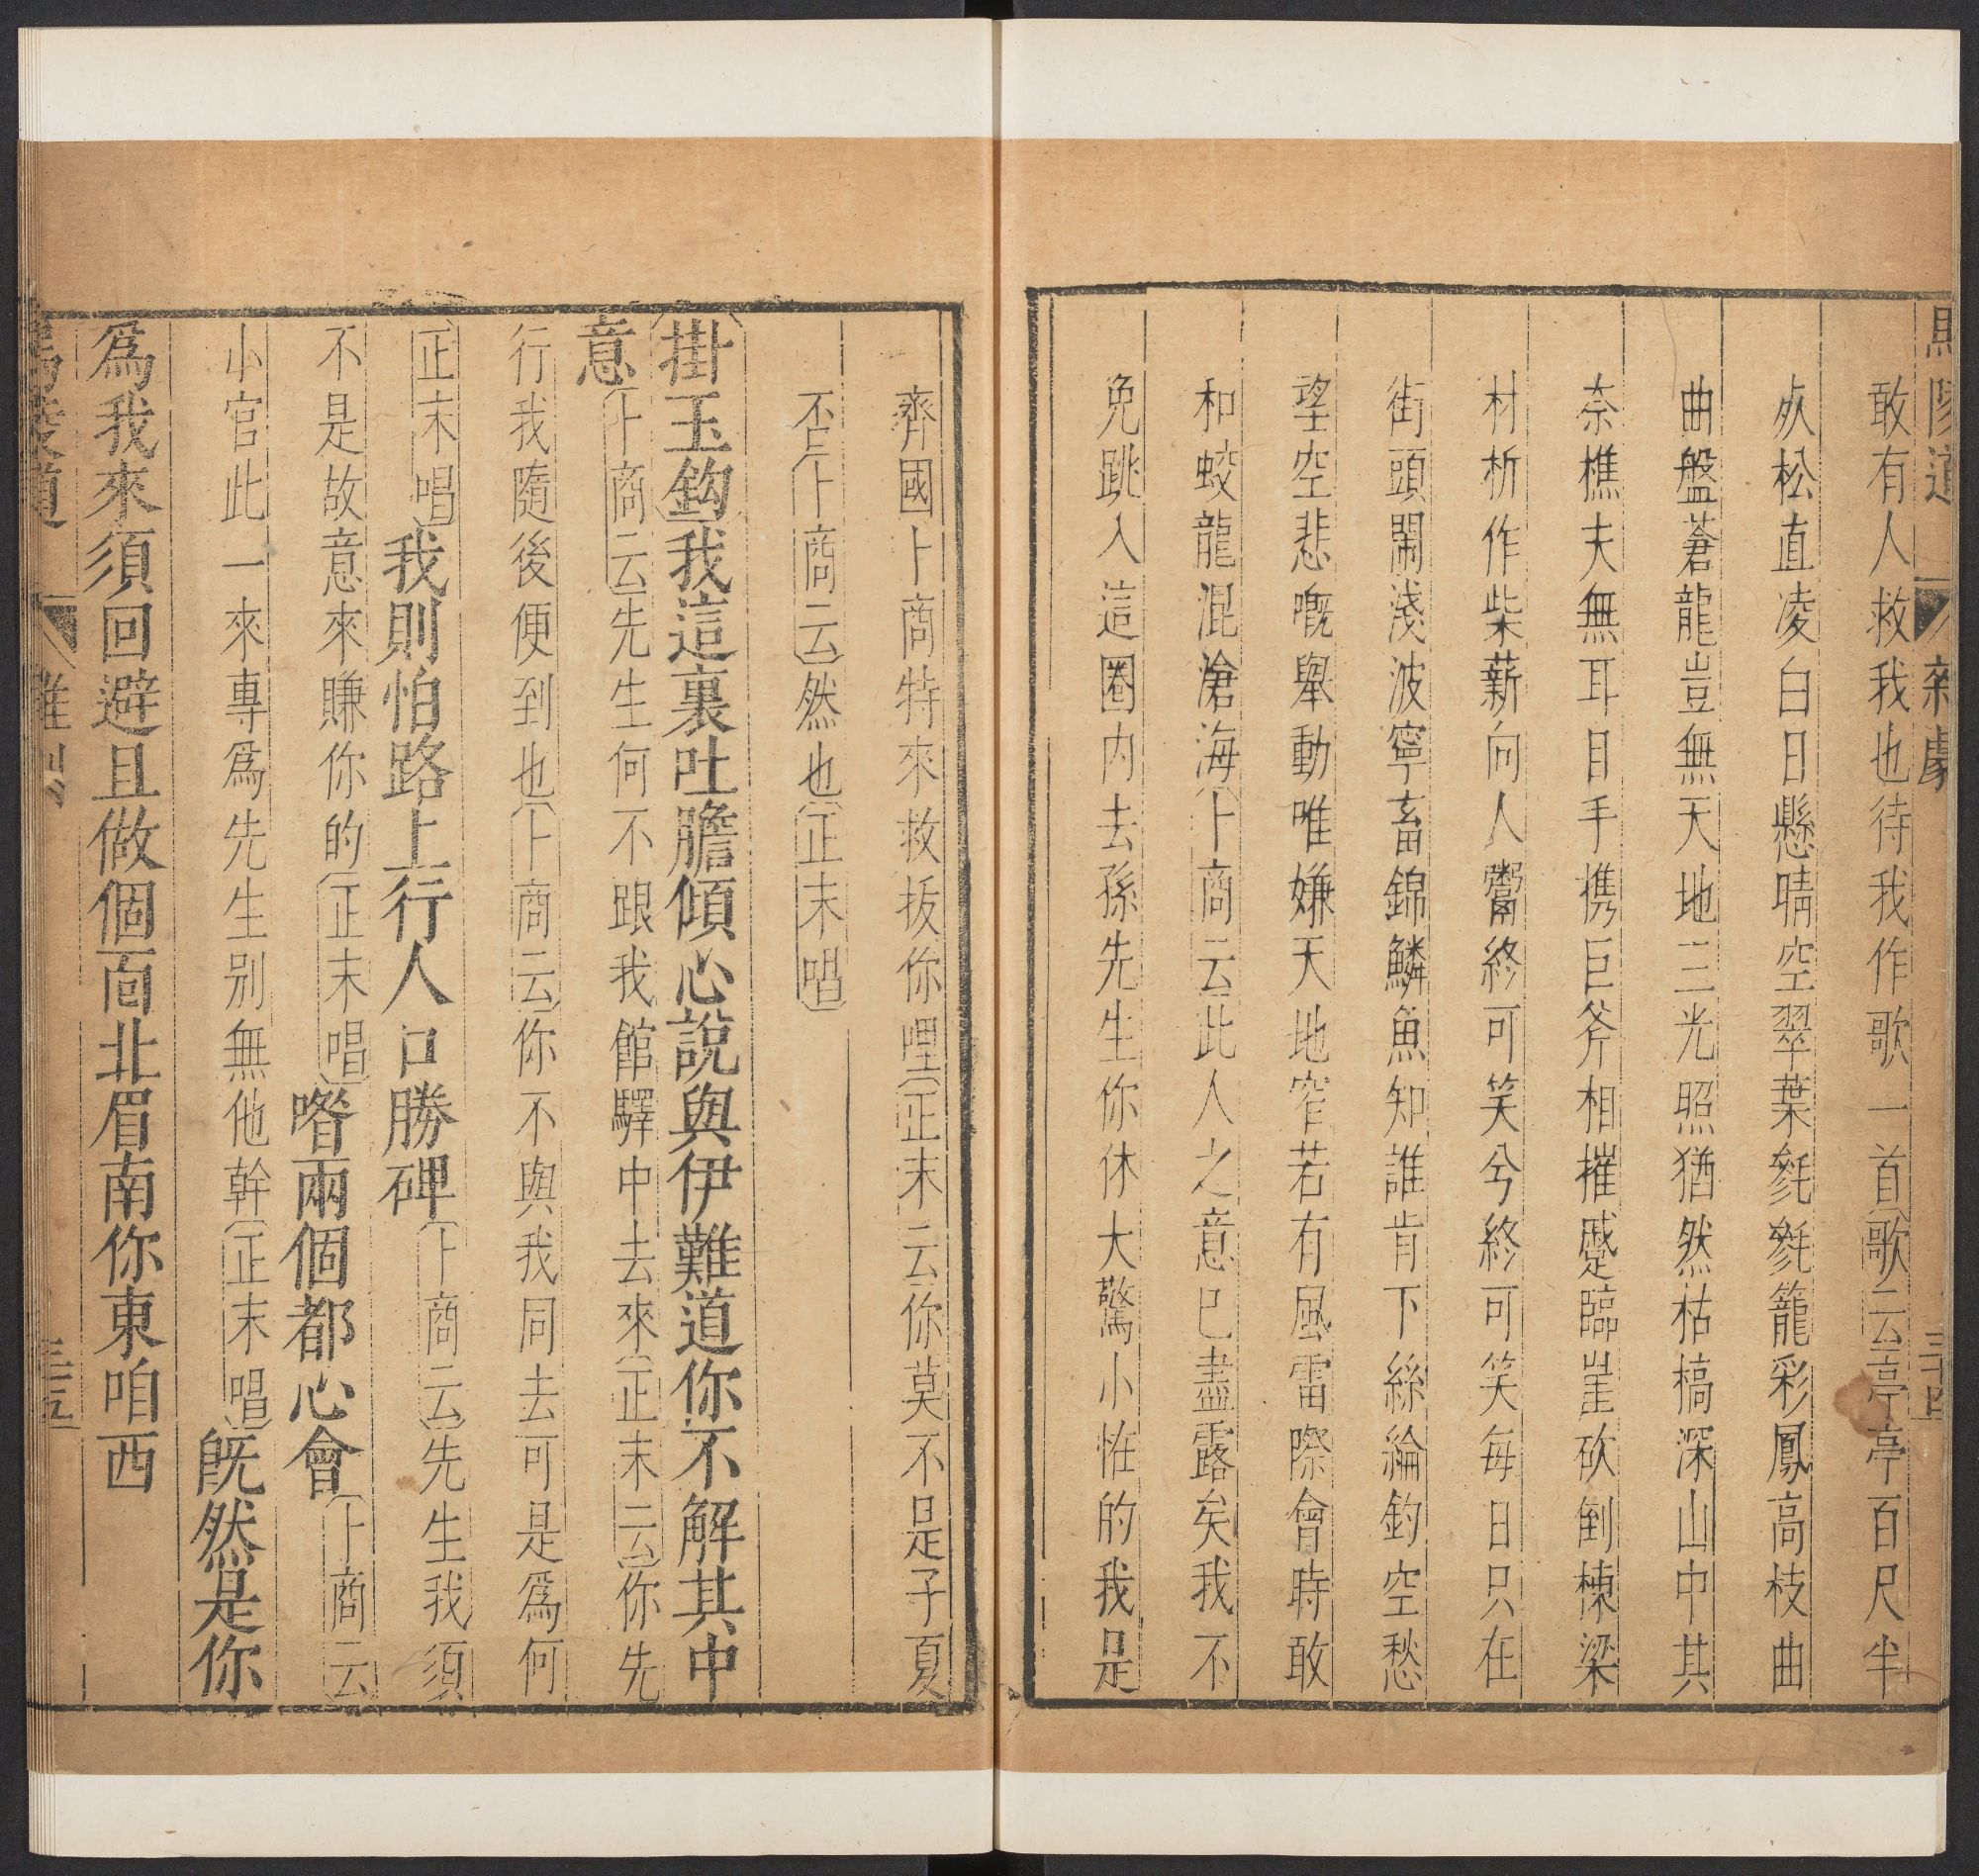 馬陵道 雜劇 三十四
敢有人救我也待我作歌一首歌云亭亭百尺半
死松直凌白日懸晴空翠葉毿毿籠彩鳳高枝曲
曲盤蒼龍豈無天地三光照猶然枯槁深山中其
奈樵夫無耳目手携巨斧相摧蹙臨崖砍倒棟梁
材析作柴薪向人鬻終可笑兮終可笑每日只在
街頭閙淺波寧畜錦鱗魚知誰肯下絲綸釣空愁
望空悲嘅舉動唯嫌天地窄若有風雷際會時敢
和蛟龍混滄海卜商云此人之意已盡露矣我不
免跳入這圈内去孫先生你休大驚小恠的我是
齊國卜商特來救拔你哩正末云你莫不是子夏
否卜商云然也正末唱
掛玉鈎我這裏吐膽傾心說與伊難道你不解其中
意卜商云先生何不跟我館驛中去來正末云你先
行我隨後便到也卜商云你不與我同去可是爲何
正末唱我則怕路上行人口勝碑卜商云先生我須
不是故意來賺你的正末唱喒兩個都心會卜商云
小官此一來專爲先生別無他幹正末唱旣然是你
爲我來須回避且做個面北眉南你東咱西
馬陵道 雜劇 三十五